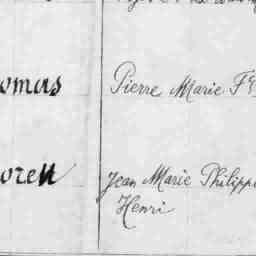 omas Pierre Marie Fr
oren Jean Marie Philippe
Henri